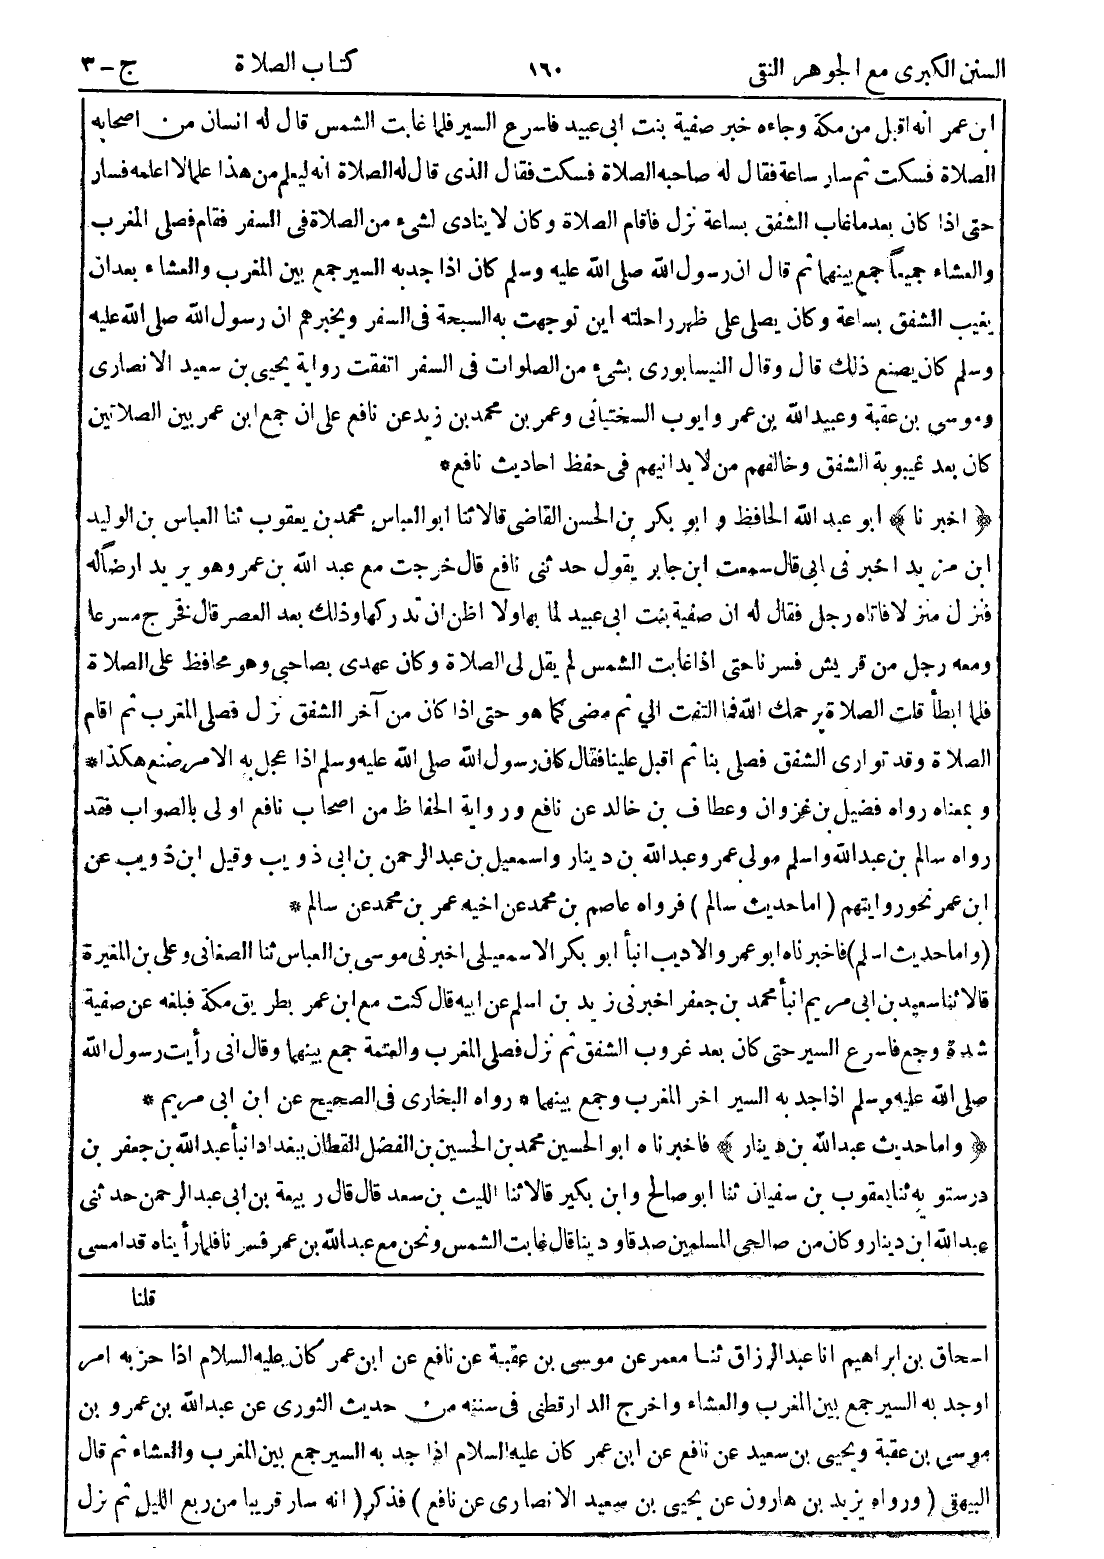 السنن الكبرى مع الجوهر النقى ١٦٠ كتاب الصلاة ج - ٣
ابن عمر انه اقبل من مكة وجاءه خبر صفية بنت ابى عبيد فاسرع السير فلما غابت الشمس قال له انسان من اصحابه
الصلاة فسكت ثم سار ساعة فقال له صاحبه الصلاة فسكت فقال الذى قال له الصلاة انه ليعلم من هذا علما لا اعلمه فسار
حتى اذا كان بعد ماغاب الشفق بساعة نزل فاقام الصلاة وكان لا ينادى لشىء من الصلاة فى السفر فقام فصلى المغرب
والعشاء جميعاً جمع بينهما ثم قال ان رسول الله صلى الله عليه وسلم كان اذا جد به السير جمع بين المغرب والعشاء بعد ان
يغيب الشفق بساعة وكان يصلى على ظهر راحلته اين توجهت به السبحة فى السفر ويخبرهم ان رسول الله صلى الله عليه
وسلم كان يصنع ذلك قال وقال النيسابورى بشىء من الصلوات فى السفر اتفقت رواية يحيى بن سعيد الانصارى
وموسى بن عقبة وعبيد الله بن عمر وايوب السختيانى وعمر بن محمد بن زيد عن نافع على ان جمع ابن عمر بين الصلاتين
كان بعد غيبوبة الشفق وخالفهم من لا يدانيهم فى حفظ احاديث نافع *
﴿ اخبر نا ﴾ ابو عبد الله الحافظ و ابو بكر بن الحسن القاضى قالا ثنا ابو العباس محمد بن يعقوب ثنا العباس بن الوليد
ابن مزيد اخبرنى ابى قال سمعت ابن جابر يقول حدثنى نافع قال خرجت مع عبد الله بن عمر وهو يريد ارضاً له
فنزل منزلا فاتاه رجل فقال له ان صفية بنت ابى عبيد لما بها ولا اظن ان تدركها وذلك بعد العصر قال فخرج مسرعا
ومعه رجل من قريش فسرنا حتى اذا غابت الشمس لم يقل لى الصلاة وكان عهدى بصاحبى وهو محافظ على الصلاة
فلما ابطأ قلت الصلاة يرحمك الله فما التفت الي ثم مضى كما هو حتى اذا كان من آخر الشفق نزل فصلى المغرب ثم اقام
الصلاة وقد توارى الشفق فصلى بنا ثم اقبل علينا فقال كان رسول الله صلى الله عليه وسلم اذا عجل به الامر صنع هكذا *
و بمعناه رواه فضيل بن غزوان وعطاف بن خالد عن نافع ورواية الحفاظ من اصحاب نافع اولى بالصواب فقد
رواه سالم بن عبد الله واسلم مولى عمر وعبد الله بن دينار واسمعيل بن عبد الرحمن بن ابى ذويب وقيل ابن ذويب عن
ابن عمر نحو روايتهم ( اما حديث سالم ) فرواه عاصم بن محمد عن اخيه عمر بن محمد عن سالم *
( واما حديث اسلم ) فاخبرناه ابو عمرو الاديب انبأ ابو بكر الاسمعيلى اخبرنى موسى بن العباس ثنا الصغانى وعلى بن المغيرة
قالا ثنا سعيد بن ابى مريم انبأ محمد بن جعفر اخبرنى زيد بن اسلم عن ابيه قال كنت مع ابن عمر بطريق مكة فبلغه عن صفية
شدة وجع فاسرع السير حتى كان بعد غروب الشفق ثم نزل فصلى المغرب والعتمة جمع بينهما وقال انى رأيت رسول الله
صلى الله عليه وسلم اذا جد به السير اخر المغرب وجمع بينهما * رواه البخارى فى الصحيح عن ابن ابى مريم *
﴿ واما حديث عبد الله بن دينار ﴾ فاخبرناه ابو الحسين محمد بن الحسين بن الفضل القطان ببغداد انبأ عبد الله بن جعفر بن
درستويه ثنا يعقوب بن سفيان ثنا ابو صالح وابن بكير قالا ثنا الليث بن سعد قال قال ربيعة بن ابى عبد الرحمن حدثنى
عبد الله ابن دينار وكان من صالحى المسلمين صدقا ودينا قال غابت الشمس ونحن مع عبد الله بن عمر فسرنا فلما رأيناه قد امسى
قلنا
اسحاق بن ابراهيم انا عبد الرزاق ثنا معمر عن موسى بن عقبة عن نافع عن ابن عمر كان عليه السلام اذا حزبه امر
اوجد به السير جمع بين المغرب والعشاء واخرج الدارقطنى فى سننه من حديث الثورى عن عبد الله بن عمرو بن
موسى بن عقبة ويحيى بن سعيد عن نافع عن ابن عمر كان عليه السلام اذا جد به السير جمع بين المغرب والعشاء ثم قال
البيهقى ( ورواه يزيد بن هارون عن يحيى بن سعيد الانصارى عن نافع ) فذكر ( انه سار قريبا من ربع الليل ثم نزل